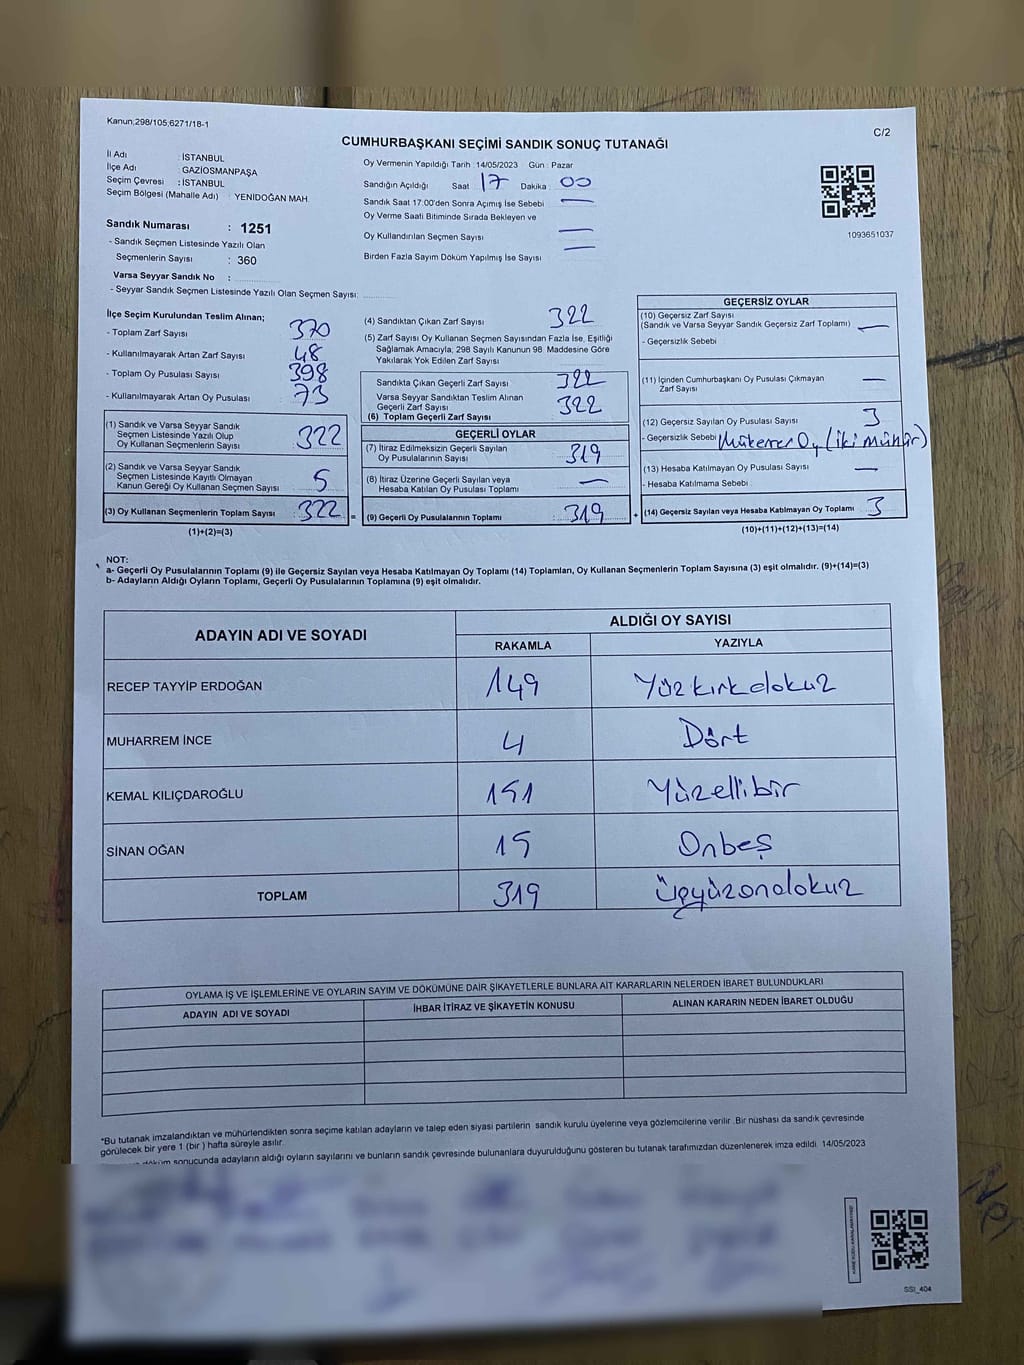 Kanun;298/105;6271/18-1
C/2
CUMHURBAŞKANI SEÇİMİ SANDIK SONUÇ TUTANAĞI
İl Adı : İSTANBUL
İlçe Adı : GAZİOSMANPAŞA
Seçim Çevresi : İSTANBUL
Seçim Bölgesi (Mahalle Adı) : YENİDOĞAN MAH.
Sandık Numarası : 1251
- Sandık Seçmen Listesinde Yazılı Olan
Seçmenlerin Sayısı : 360
Varsa Seyyar Sandık No :
- Seyyar Sandık Seçmen Listesinde Yazılı Olan Seçmen Sayısı:
Oy Vermenin Yapıldığı Tarih : 14/05/2023 Gün : Pazar
Sandığın Açıldığı Saat 17 Dakika : 00
Sandık Saat 17:00'den Sonra Açımış İse Sebebi —
Oy Verme Saati Bitiminde Sırada Bekleyen ve
Oy Kullandırılan Seçmen Sayısı —
Birden Fazla Sayım Döküm Yapılmış İse Sayısı —
1093651037
İlçe Seçim Kurulundan Teslim Alınan;
- Toplam Zarf Sayısı 370
- Kullanılmayarak Artan Zarf Sayısı 48
- Toplam Oy Pusulası Sayısı 398
- Kullanılmayarak Artan Oy Pusulası 73
(1) Sandık ve Varsa Seyyar Sandık
Seçmen Listesinde Yazılı Olup
Oy Kullanan Seçmenlerin Sayısı : 322
(2) Sandık ve Varsa Seyyar Sandık
Seçmen Listesinde Kayıtlı Olmayan
Kanun Gereği Oy Kullanan Seçmen Sayısı : 5
(3) Oy Kullanan Seçmenlerin Toplam Sayısı : 322 =
(1)+(2)=(3)
(4) Sandıktan Çıkan Zarf Sayısı 322
(5) Zarf Sayısı Oy Kullanan Seçmen Sayısından Fazla İse, Eşitliği
Sağlamak Amacıyla; 298 Sayılı Kanunun 98. Maddesine Göre
Yakılarak Yok Edilen Zarf Sayısı
Sandıkta Çıkan Geçerli Zarf Sayısı 322
Varsa Seyyar Sandıktan Teslim Alınan
Geçerli Zarf Sayısı 322
(6) Toplam Geçerli Zarf Sayısı
GEÇERLİ OYLAR
(7) İtiraz Edilmeksizin Geçerli Sayılan
Oy Pusulalarının Sayısı 319
(8) İtiraz Üzerine Geçerli Sayılan veya
Hesaba Katılan Oy Pusulası Toplamı —
(9) Geçerli Oy Pusulalarının Toplamı : 319 +
GEÇERSİZ OYLAR
(10) Geçersiz Zarf Sayısı
(Sandık ve Varsa Seyyar Sandık Geçersiz Zarf Toplamı) —
- Geçersizlik Sebebi
(11) İçinden Cumhurbaşkanı Oy Pusulası Çıkmayan
Zarf Sayısı —
(12) Geçersiz Sayılan Oy Pusulası Sayısı 3
- Geçersizlik Sebebi Mükerrer Oy (iki mühür)
(13) Hesaba Katılmayan Oy Pusulası Sayısı —
- Hesaba Katılmama Sebebi
(14) Geçersiz Sayılan veya Hesaba Katılmayan Oy Toplamı 3
(10)+(11)+(12)+(13)=(14)
NOT:
a- Geçerli Oy Pusulalarının Toplamı (9) ile Geçersiz Sayılan veya Hesaba Katılmayan Oy Toplamı (14) Toplamları, Oy Kullanan Seçmenlerin Toplam Sayısına (3) eşit olmalıdır. (9)+(14)=(3)
b- Adayların Aldığı Oyların Toplamı, Geçerli Oy Pusulalarının Toplamına (9) eşit olmalıdır.
ADAYIN ADI VE SOYADI
ALDIĞI OY SAYISI
RAKAMLA YAZIYLA
RECEP TAYYİP ERDOĞAN 149 Yüzkırkdokuz
MUHARREM İNCE 4 Dört
KEMAL KILIÇDAROĞLU 151 Yüzellibir
SİNAN OĞAN 15 Onbeş
TOPLAM 319 Üçyüzondokuz
OYLAMA İŞ VE İŞLEMLERİNE VE OYLARIN SAYIM VE DÖKÜMÜNE DAİR ŞİKAYETLERLE BUNLARA AİT KARARLARIN NELERDEN İBARET BULUNDUKLARI
ADAYIN ADI VE SOYADI İHBAR İTİRAZ VE ŞİKAYETİN KONUSU ALINAN KARARIN NEDEN İBARET OLDUĞU
*Bu tutanak imzalandıktan ve mühürlendikten sonra seçime katılan adayların ve talep eden siyasi partilerin sandık kurulu üyelerine veya gözlemcilerine verilir. Bir nüshası da sandık çevresinde
görülecek bir yere 1 (bir ) hafta süreyle asılır.
döküm sonucunda adayların aldığı oyların sayılarını ve bunların sandık çevresinde bulunanlara duyurulduğunu gösteren bu tutanak tarafımızdan düzenlenerek imza edildi. 14/05/2023
SSI_404